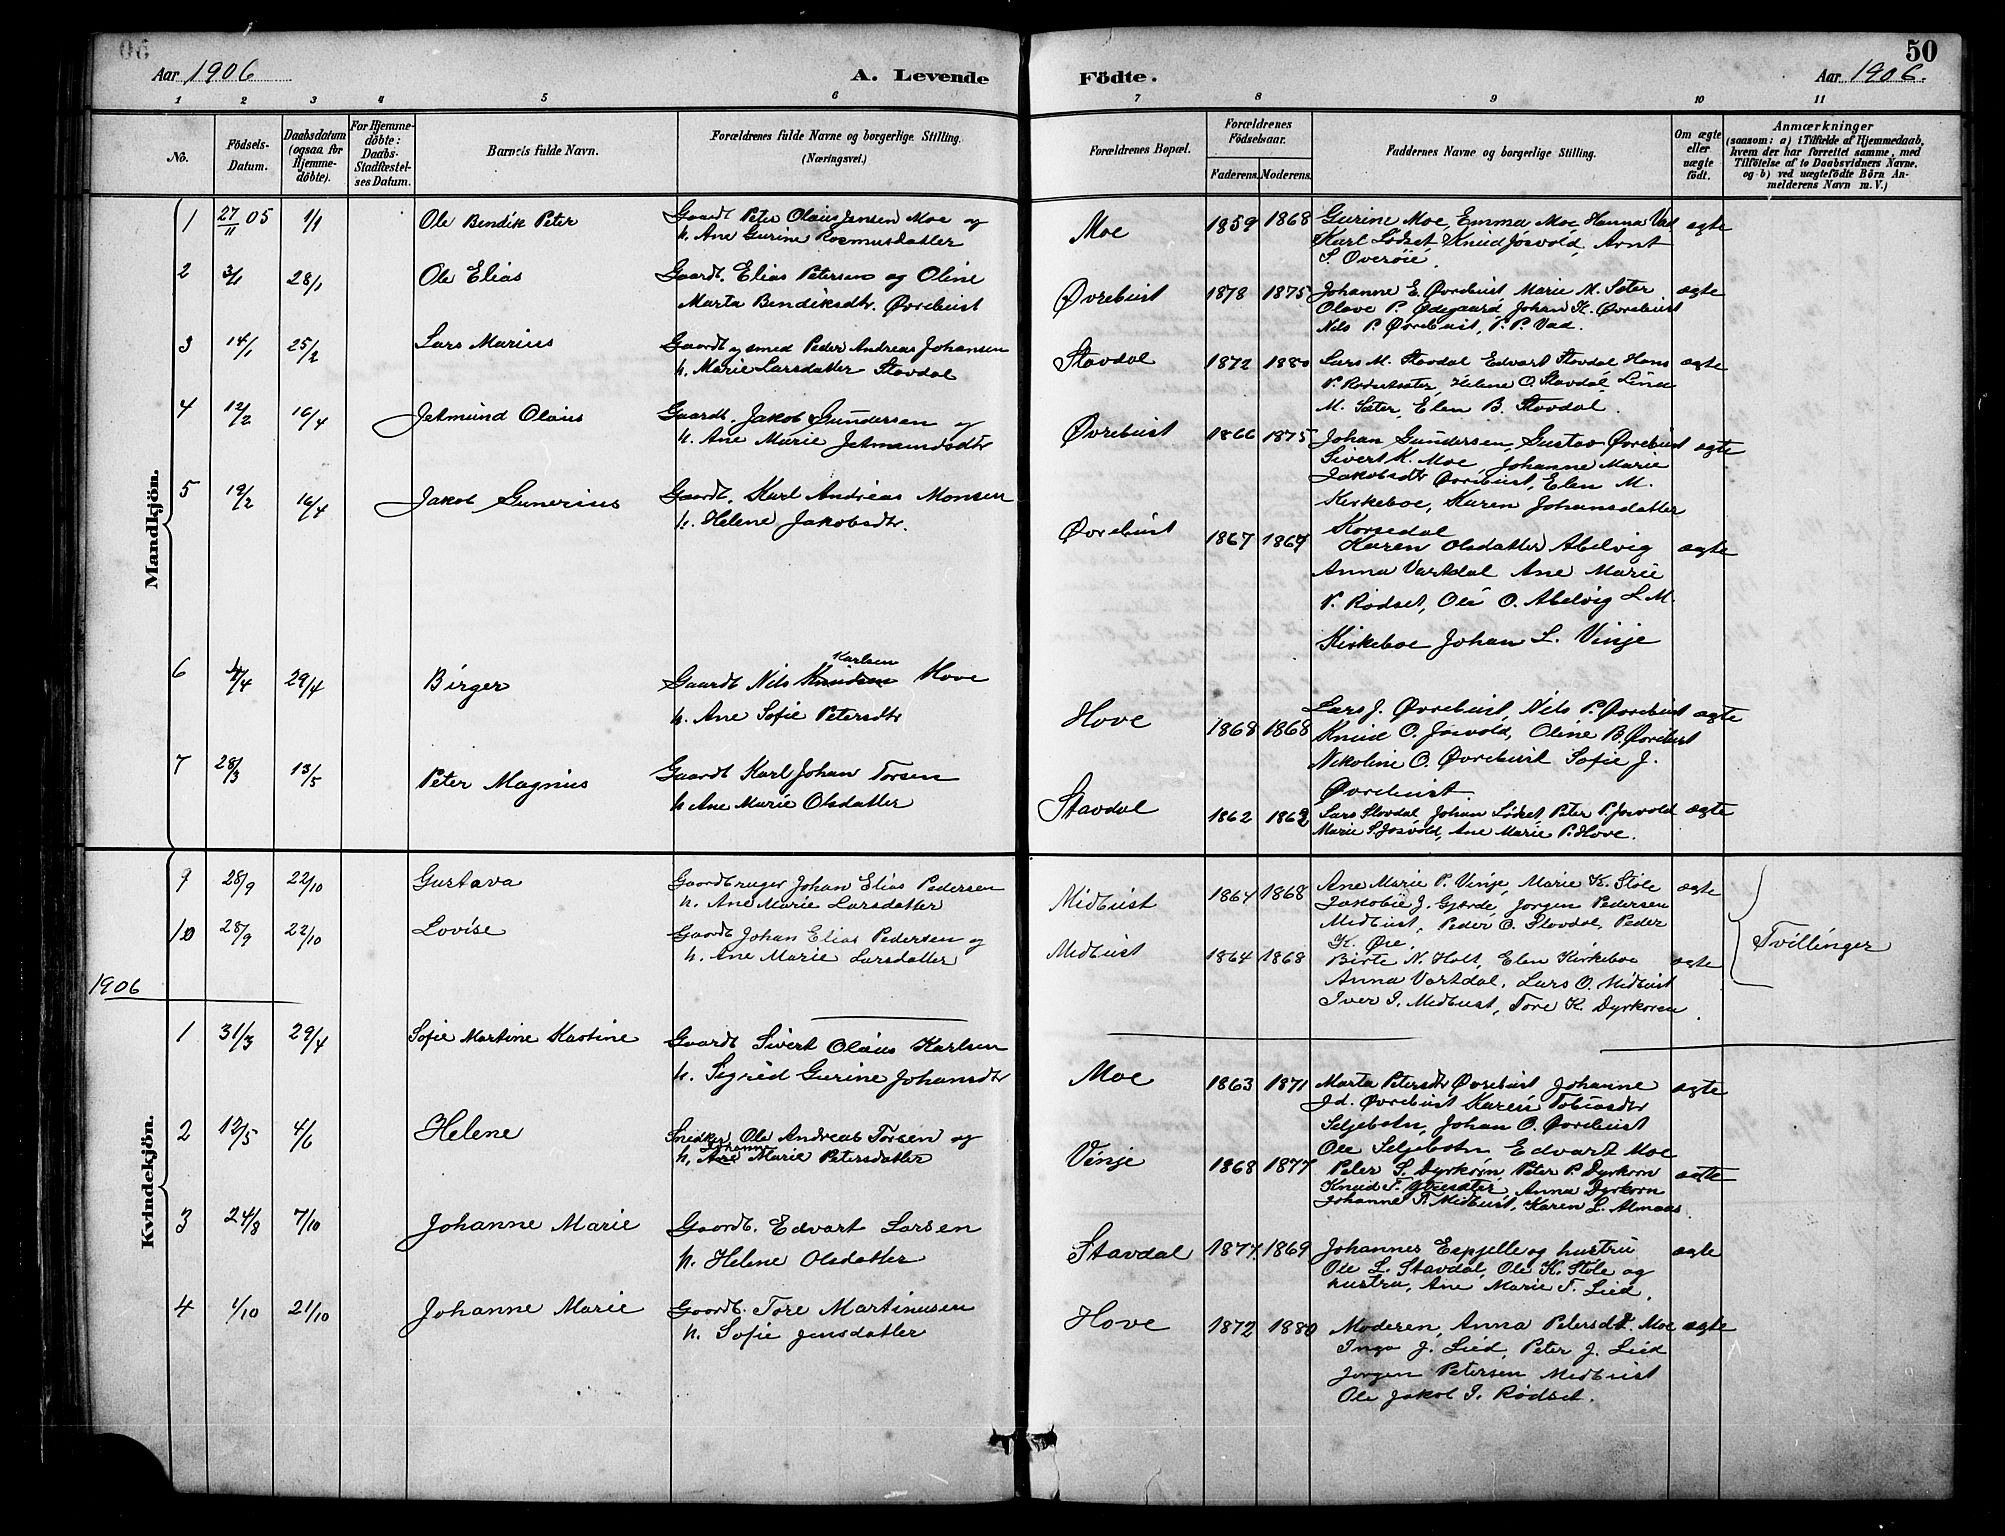 50
Aar 1906
A. Levende
Födte.
Aar 1906.
1 2 3 4 5 6 7 8 9 10 11
No.
Födsels-
Datum.
Daabsdatum
(ogsaa for
Hjemme-
döbte).
For Hjemme-
döbte:
Daabs-
Stadfæstel-
ses Datum.
Barnets fulde Navn.
Forældrenes fulde Navne og borgerlige Stilling.
(Næringsvei.)
Forældrenes Bopæl.
Forældrenes
Födselsaar.
Faderens. Moderens.
Faddernes Navne og borgerlige Stilling.
Om ægte
eller
uægte
födt.
Anmærkninger
(saasom: a) i Tilfælde af Hjemmedaab,
hvem der har forrettet samme, med
Tilföielse af to Daabsvidners Navne.
og b) ved uægtefödte Börn An-
melderens Navn m. V.)
Mandkjön.
1 27/11 05 1/1 Ole Bendik Peter
Gaardt Peter Olaus Jensen Moe og
h. Ane Gurine Rasmusdatter
Moe 1859 1868
Gurine Moe, Emma Moe Hanna Vad ægte
Karl Lødset Knud Jøsvold, Arnt
S. Overøie
2 3/1 28/1 Ole Elias
Gaardt. Elias Petersen og Oline
Marta Bendiksdtr. Øvrebust
Øvrebust 1878 1875
Johanne E. Øvrebust, Marie M. Sæter ægte
Olave P. Ødegaard, Johan K. Øvrebust
Nils P. Øvrebust, P. P. Vad.
3 14/1 25/2 Lars Marius
Gaardt og smed Peder Andreas Johansen
h. Marie Larsdatter Stavdal
Stavdal 1872 1880
Lars M. Stavdal Edvart Stavdal Hans ægte
P. Rødsetsæter, Helene O. Stavdal Lina
M. Sæter, Elen B. Stavdal.
4 12/2 16/4 Jetmund Olaus
Gaardt. Jakob Gundersen og
h. Ane Marie Jetmundsdtr
Øvrebust 1866 1875
Johan Gundersen, Gustav Øvrebust ægte
Sivert K. Moe, Johanne Marie
Jakobsdtr Øvrebust, Elen M.
Kirkeboe, Karen Johansdatter
Korsedal
5 19/2 16/4 Jakob Gunerius
Gaardt. Karl Andreas Monsen
h. Helene Jakobsdtr.
Øvrebust 1867 1867
Karen Olsdatter Abelvig ægte
Anna Vartdal Ane Marie
P. Rødset, Ole O. Abelvig L. M.
Kirkeboe Johan L. Vinje
6 4/4 29/4 Birger
Karlsen
Gaardt Nils Knudsen Hove
h. Ane Sofie Petersdtr
Hove 1868 1868
Lars J. Øvrebust, Nils P. Øvrebust ægte
Knud O. Jøsvold, Oline B. Øvrebust
Nikoline O. Øvrebust Sofie J.
Øvrebust
7 28/3 13/5 Peter Magnus
Gaardt Karl Johan Torsen
h Ane Marie Olsdatter
Stavdal 1862 1862
Lars Stavdal, Johan Lødset, Peter P. Jøsvold ægte
Marie S. Jøsvold, Ane Marie P. Hove.
9 28/9 22/10 Gustava
Gaardbruger Johan Elias Pedersen
h. Ane Marie Larsdatter
Midtust 1864 1868
Ane Marie P. Vinje, Marie K. Støle ægte
Jakobie J. Gjærde, Jørgen Pedersen
Midtust, Peder O. Stavdal, Peder
K. Øie,
10 28/9 22/10 Lovise
Gaardt Johan Elias Pedersen og
h. Ane Marie Larsdatter
Midtust 1864 1868
Birte N. Holt, Elen Kirkeboe ægte
Anna Vartdal, Lars O. Midtust
Iver I. Midtust, Tore K. Dyrkoren.
Tvillinger
1906
Kvindekjön.
1 31/3 29/4 Sofie Martine Kastine
Gaardt Sivert Olaus Karlsen
h. Sigrid Gurine Johansdtr
Moe 1863 1871
Marta Petersdtr Øvrebust Johanne ægte
Jd. Øvrebust Karen Tobiasdtr
Seljebotn, Johan O. Øvrebust
Ole Seljebotn Edvart Moe
2 12/5 4/6 Helene
Snedker Ole Andreas Torsen og
Johanne
h. Ane Marie Petersdatter
Vinje 1868 1877
Peter S. Dyrkorn, Peter P. Dyrkorn ægte
Knud T. , Anna Dyrkorn
Johanne T. Midtust, Karen L. Almaas.
3 24/8 7/10 Johanne Marie
Gaardt. Edvart Larsen
h. Helene Olsdatter
Stavdal 1877. 1869
Johannes Espjelle og hustru ægte
Ole L. Stavdal, Ole K. Støle og
hustru, Ane Marie T. Lied.
4 1/10 21/10 Johanne Marie
Gaardt. Tore Martinusen
h. Sofie Jensdatter
Hove 1872 1880
Moderen, Anna Petersdt. Moe ægte
Inga J. Lied, Peter J. Lied
Jørgen Petersen Midtust
Ole Jakob I. Rødset.